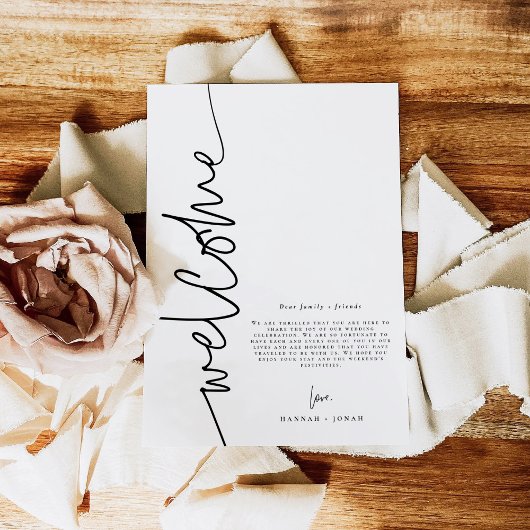 welcome
Dear family + friends
WE ARE THRILLED THAT YOU ARE HERE TO
SHARE THE JOY OF OUR WEDDING
CELEBRATION. WE ARE SO FORTUNATE TO
HAVE EACH AND EVERY ONE OF YOU IN OUR
LIVES AND ARE HONORED THAT YOU HAVE
TRAVELED TO BE WITH US. WE HOPE YOU
ENJOY YOUR STAY AND THE WEEKEND'S
FESTIVITIES.
love,
HANNAH + JONAH